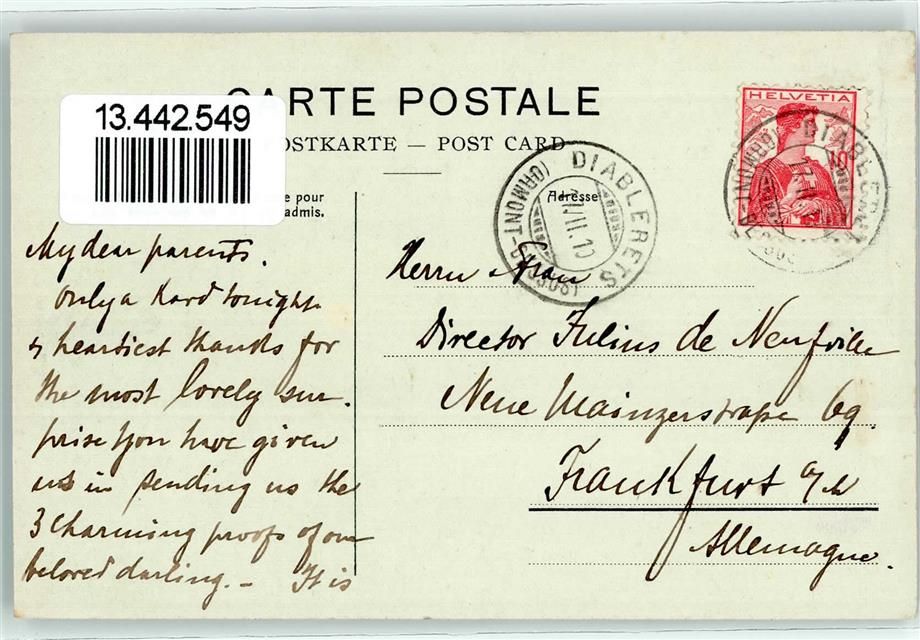 13.442.549
CARTE POSTALE
POSTKARTE — POST CARD
e pour
admis.
Adresse
HELVETIA
DIABLERETS
(ORMONT-DESSUS)
DIABLERETS
My dear parents.
Only a Kard tonight
& heartiest thanks for
the most lovely sur-
prise you have given
us in sending us the
3 charming proofs of our
beloved darling. — It is
Herrn & Frau
Director Julius de Neufville
Neue Mainzerstrasse 69.
Frankfurt a/M
Allemagne.